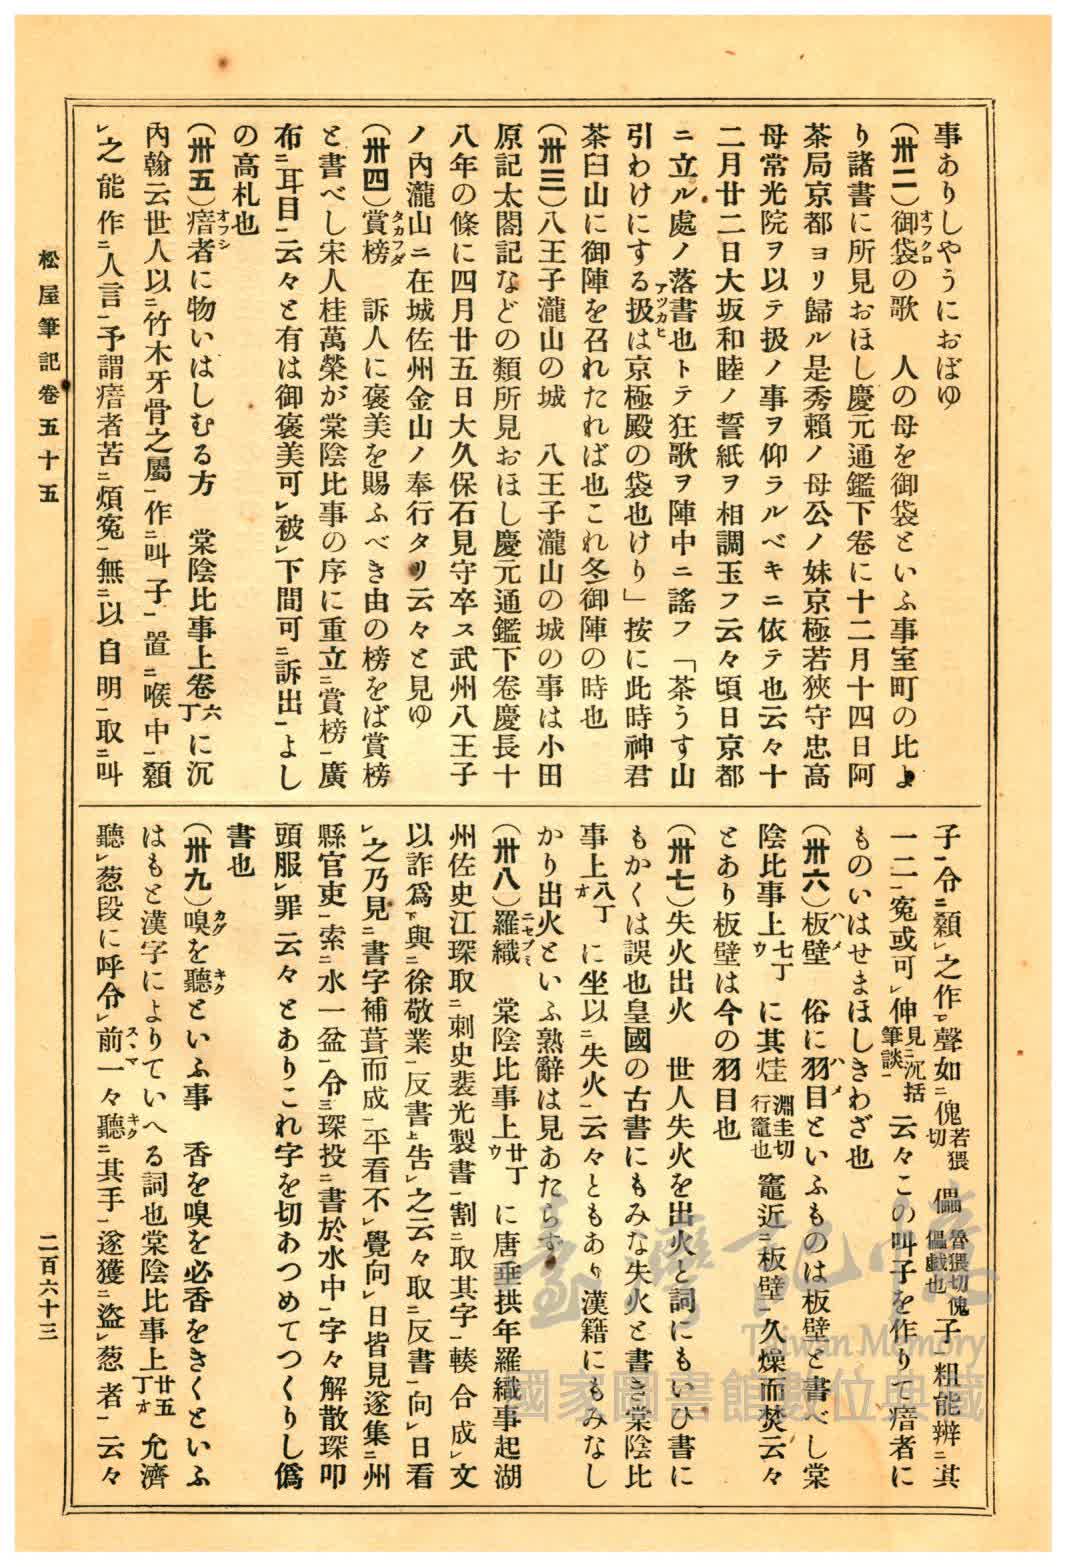 事ありしやうにおぼゆ
(卅二)御袋オフクロの歌　人の母を御袋といふ事室町の比よ
り諸書に所見おほし慶元通鑑下卷に十二月十四日阿
茶局京都ヨリ歸ル是秀賴ノ母公ノ妹京極若狹守忠高
母常光院ヲ以テ扱ノ事ヲ仰ラルベキニ依テ也云々十
二月廿二日大坂和睦ノ誓紙ヲ相調玉フ云々頃日京都
ニ立ル處ノ落書也トテ狂歌ヲ陣中ニ謠フ「茶うす山
引わけにする扱アツカヒは京極殿の袋也けり」按に此時神君
茶臼山に御陣を召れたれば也これ冬御陣の時也
(卅三)八王子瀧山の城　八王子瀧山の城の事は小田
原記太閤記などの類所見おほし慶元通鑑下卷慶長十
八年の條に四月廿五日大久保石見守卒ス武州八王子
ノ內瀧山ニ在城佐州金山ノ奉行タリ云々と見ゆ
(卅四)賞榜タカフダ　訴人に褒美を賜ふべき由の榜をば賞榜
と書べし宋人桂萬榮が棠陰比事の序に重立ニ賞榜一廣
布ニ耳目一云々と有は御褒美可レ被レ下間可ニ訴出一よし
の高札也
(卅五)瘖者オフシに物いはしむる方　棠陰比事上卷六丁に沉
內翰云世人以ニ竹木牙骨之屬一作ニ叫子一置ニ喉中一顙
レ之能作ニ人言一予謂瘖者苦ニ煩寃一無ニ以自明一取ニ叫
子一令ニ顙レ之作ロ聲如ニ傀若猥切儡魯猥切傀儡戲也子一粗能辨ニ其
一二一寃或可レ伸見ニ沉括筆談一云々この叫子を作りて瘖者に
ものいはせまほしきわざ也
(卅六)板壁ハメ　俗に羽目ハメといふものは板壁と書べし棠
陰比事上七丁ウに其烓淵圭切行竈也竈近ニ板壁一久燥而焚云々
とあり板壁は今の羽目也
(卅七)失火出火　世人失火を出火と詞にもいひ書に
もかくは誤也皇國の古書にもみな失火と書き棠陰比
事上八丁オに坐以ニ失火一云々ともあり漢籍にもみなし
かり出火といふ熟辭は見あたらず
(卅八)羅織ニセブミ　棠陰比事上廿丁ウに唐垂拱年羅織事起湖
州佐史江琛取ニ刺史裴光製書一割ニ取其字一輳合成レ文
以詐爲下與ニ徐敬業一反書上吿レ之云々取ニ反書一向レ日看
レ之乃見ニ書字補葺而成一平看不レ覺向レ日皆見遂集ニ州
縣官吏一索ニ水一盆一令三琛投ニ書於水中一字々解散琛叩
頭服レ罪云々とありこれ字を切あつめてつくりし僞
書也
(卅九)嗅カグを聽キクといふ事　香を嗅を必香をきくといふ
はもと漢字によりていへる詞也棠陰比事上廿五丁オ允濟
聽レ葱段に呼令レ前スヽマ一々聽キクニ其手一遂獲ニ盜レ葱者一云々
松屋筆記卷五十五
二百六十三
臺灣記憶
Taiwan Memory
國家圖書館數位典藏